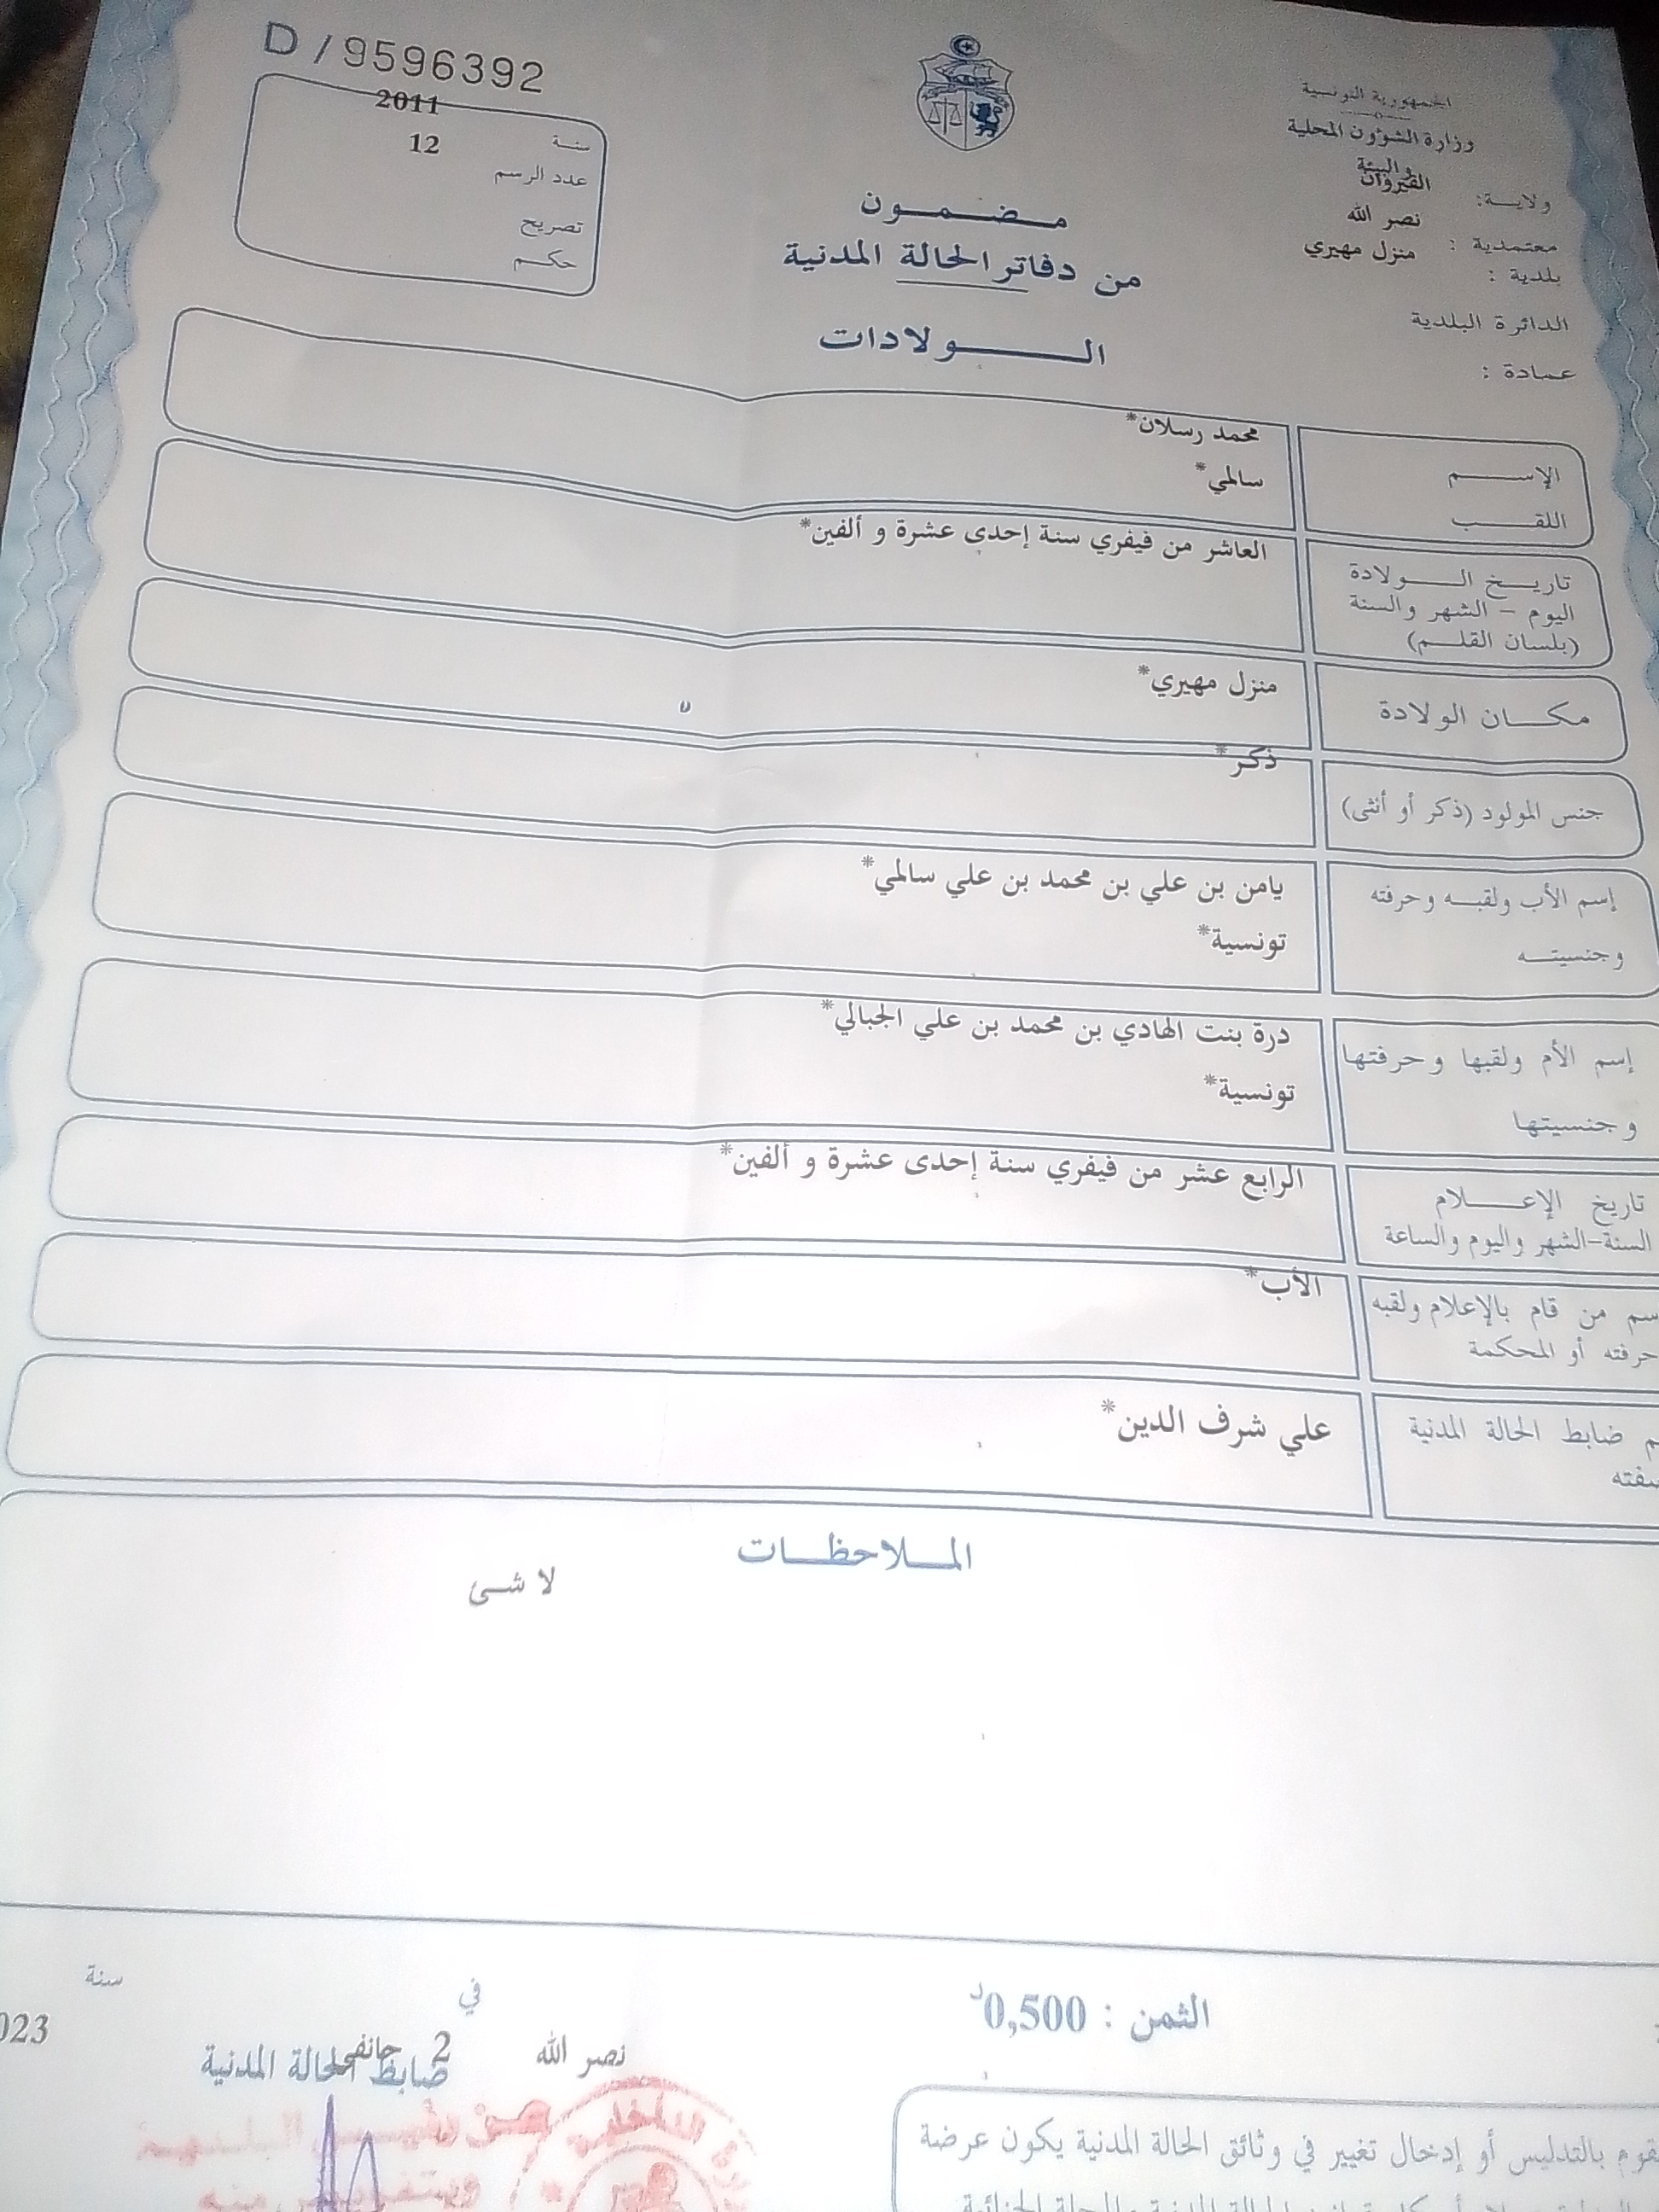 D / 9596392
الجمهورية التونسية
وزارة الشؤون المحلية
والبيئة
ولايـــة: القيروان
معتمدية : نصر الله
بلدية : منزل مهيري
الدائرة البلدية
عمادة :
سنــة 2011
عدد الرسم 12
تصريح
حكــم
مـــضـــمــون
من دفاتر الحالة المدنية
الـــــولادات
الإســـــم محمد رسلان*
اللقــــب سالمي*
تاريـــخ الـــــولادة العاشر من فيفري سنة إحدى عشرة و ألفين*
اليوم - الشهر والسنة
(بلسان القلـــم)
مكـــان الولادة منزل مهيري*
جنس المولود (ذكر أو أنثى) ذكر*
إسم الأب ولقبــه وحرفته يامن بن علي بن محمد بن علي سالمي*
وجنسيتــــه تونسية*
إسم الأم ولقبها وحرفتها درة بنت الهادي بن محمد بن علي الجبالي*
وجنسيتها تونسية*
تاريخ الإعـــــلام الرابع عشر من فيفري سنة إحدى عشرة و ألفين*
السنة-الشهر واليوم والساعة
سم من قام بالإعلام ولقبه الأب*
حرفته أو المحكمة
م ضابط الحالة المدنية علي شرف الدين*
صفته
المــــلاحظــــات
لا شــى
الثمن : 0,500د
نصر الله في 2 جانفي سنة 023
ضابط الحالة المدنية
عن رئيس البلدية
وبتفويض منه
قوم بالتدليس أو إدخال تغيير في وثائق الحالة المدنية يكون عرضة